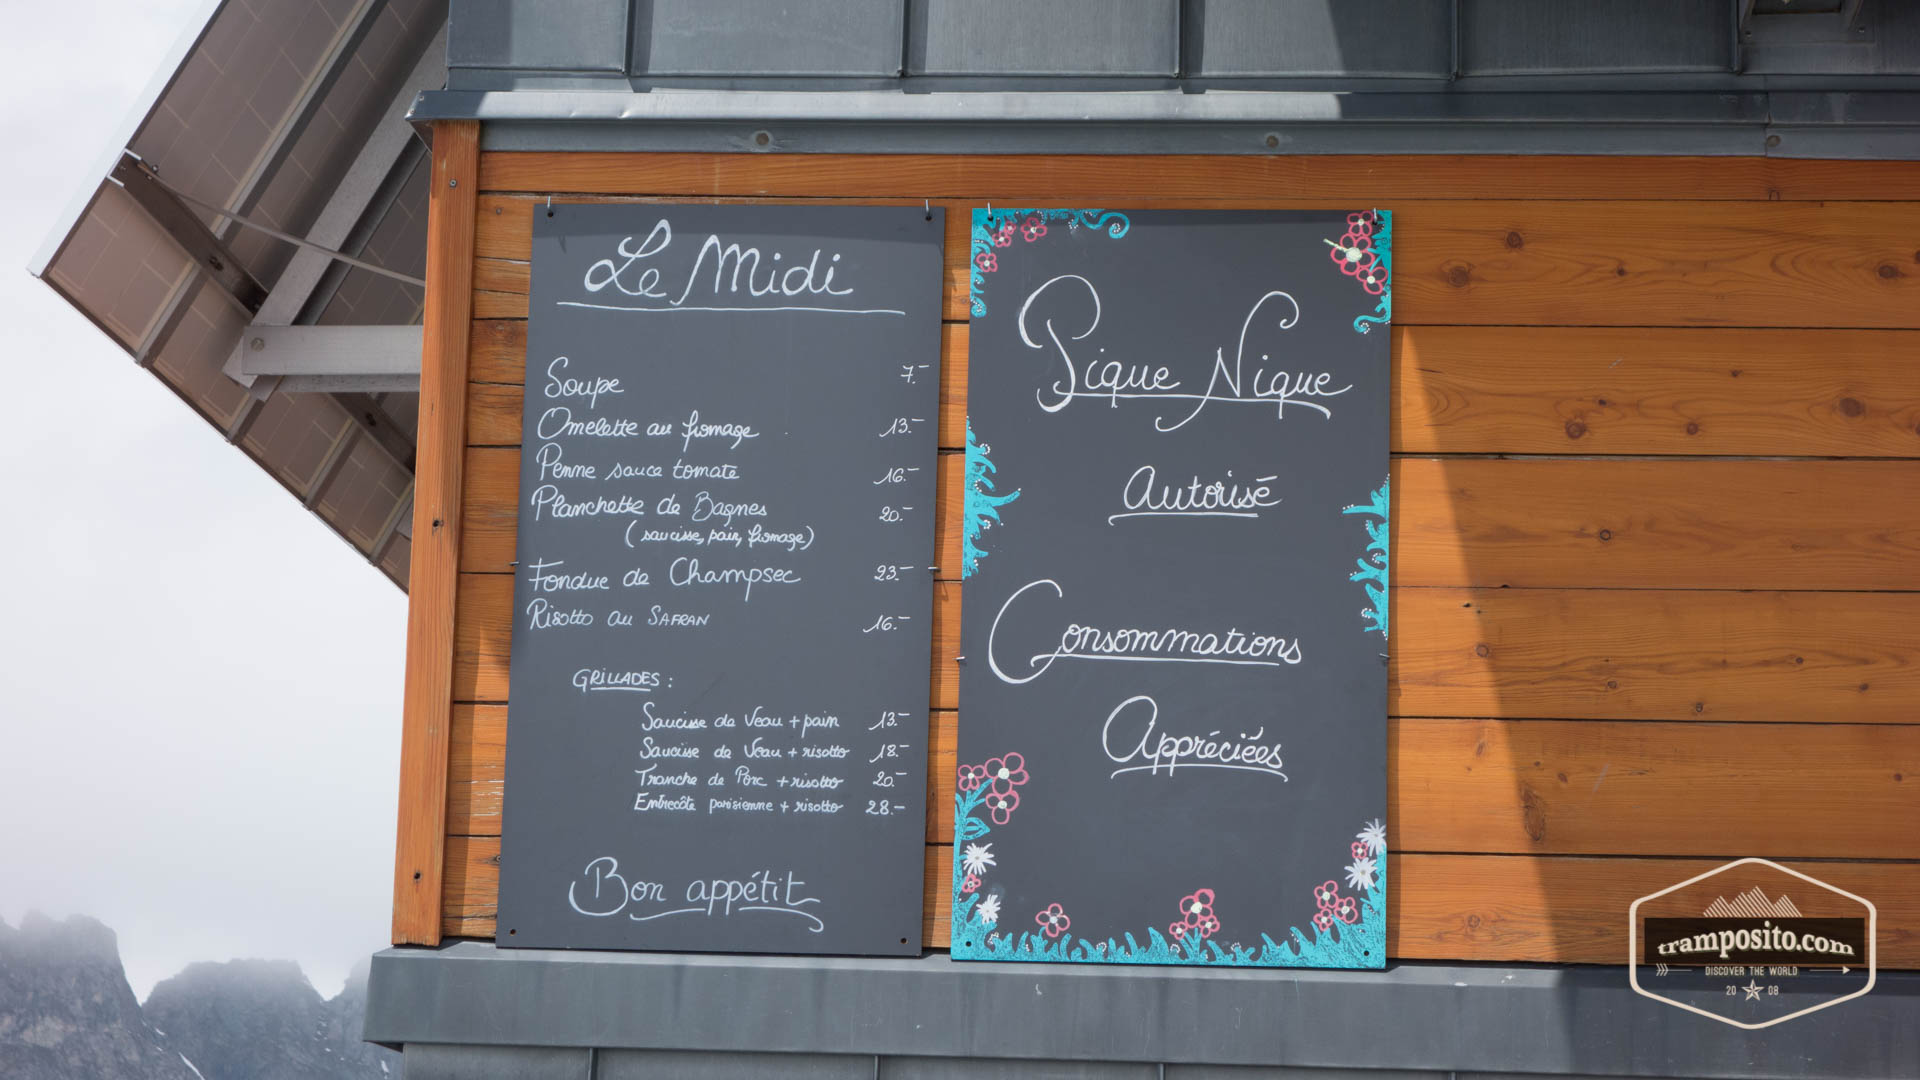 Le Midi
Soupe 7.-
Omelette au fromage 13.-
Penne sauce tomate 16.-
Planchette de Bagnes 20.-
(saucisse, pain, fromage)
Fondue de Champsec 23.-
Risotto au SAFRAN 16.-
GRILLADES :
Saucisse de Veau + pain 13.-
Saucisse de Veau + risotto 18.-
Tranche de Porc + risotto 20.-
Entrecôte parisienne + risotto 28.-
Bon appétit
Pique Nique
Autorisé
Consommations
Appréciées
tramposito.com
DISCOVER THE WORLD
20 08